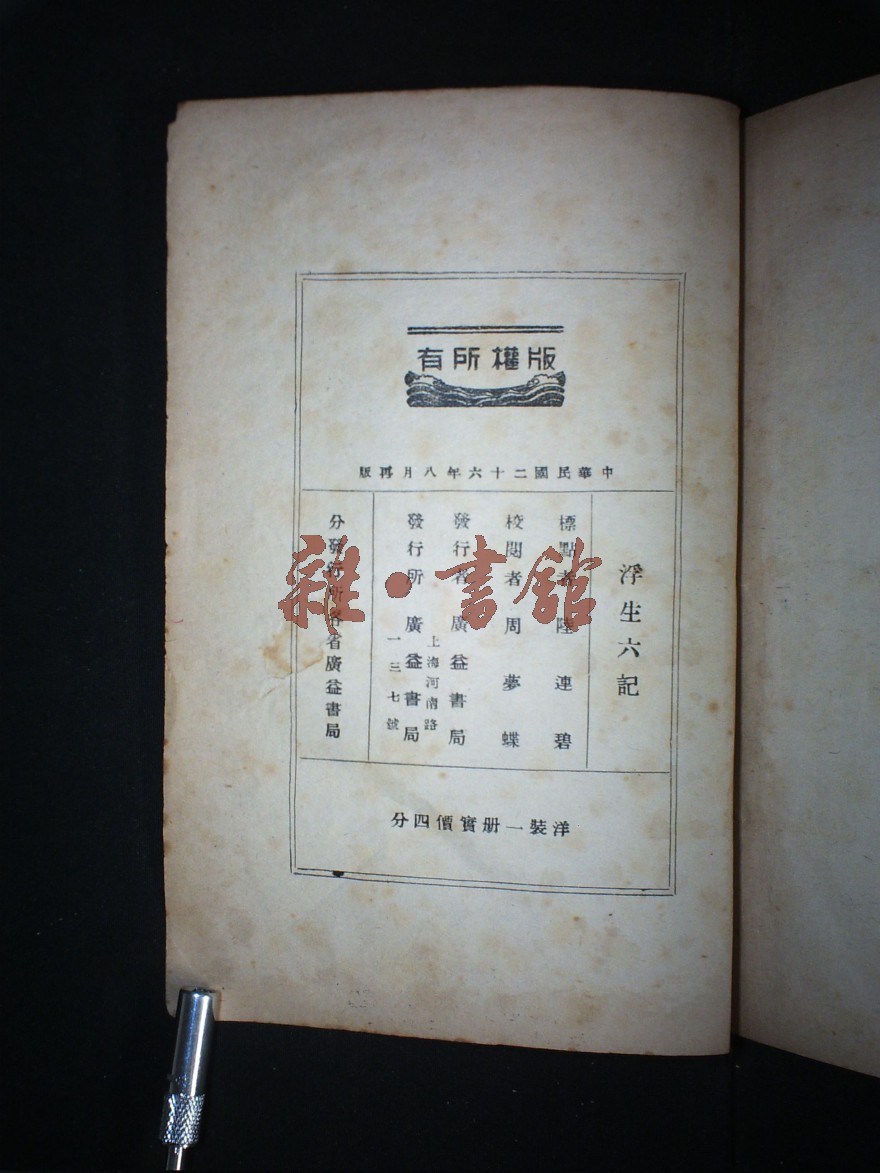 版權所有
中華民國二十六年八月再版
浮生六記
標點者 陸連碧
校閱者 周夢蝶
發行者 廣益書局
上海河南路
發行所 廣益書局
一三七號
分發行所各省廣益書局
洋裝一册實價四分
雜·書館